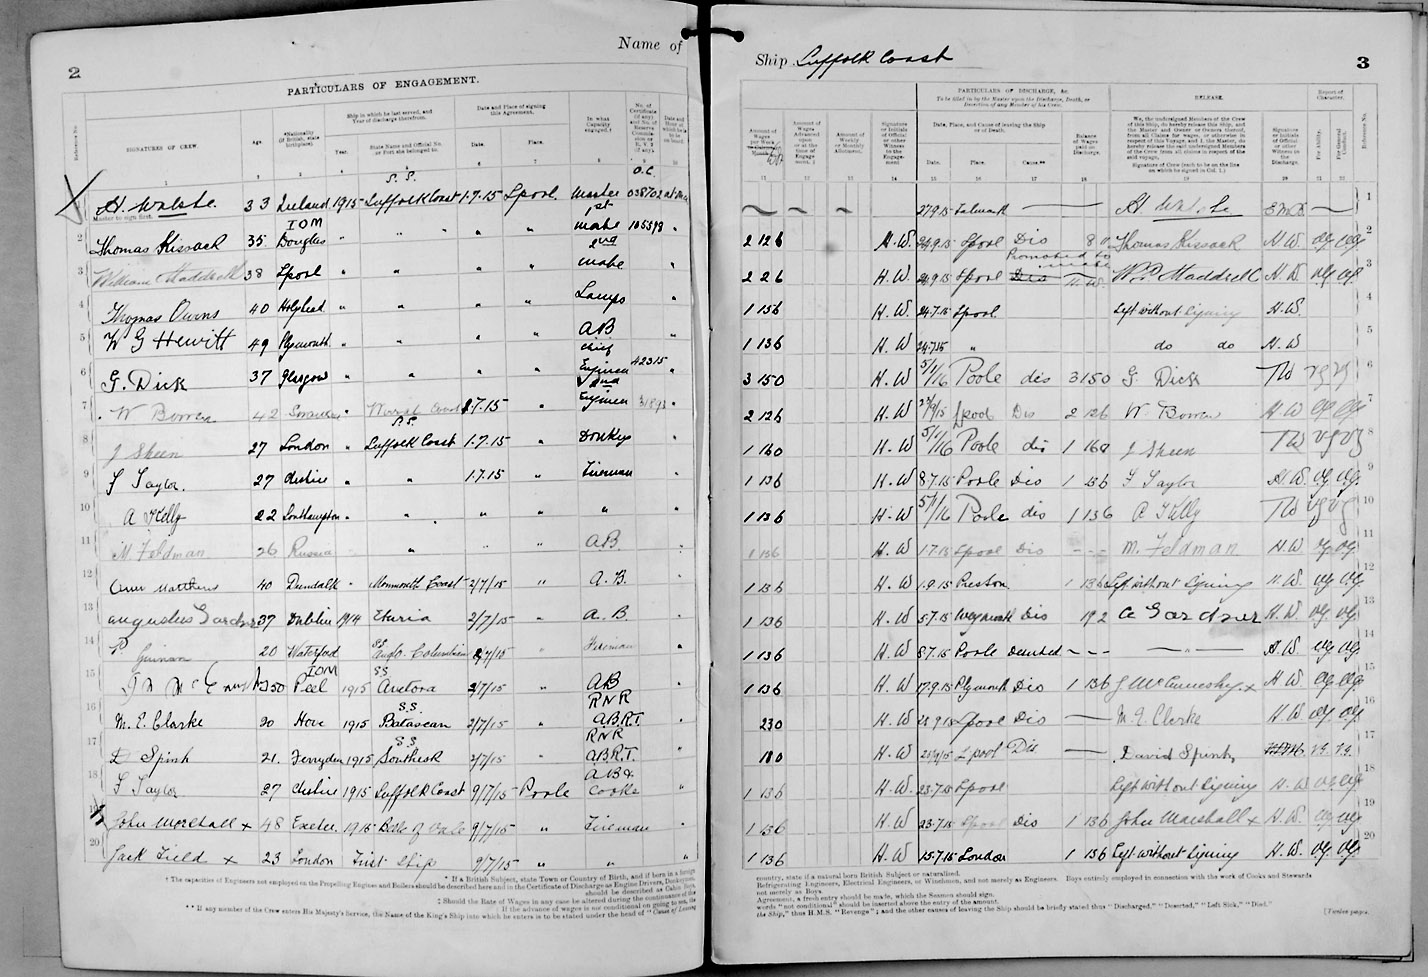 2
Name of
PARTICULARS OF ENGAGEMENT.
Reference No.
SIGNATURES OF CREW.
Age.
*Nationality (if British, state birthplace).
Ship in which he last served, and Year of discharge therefrom.
Year.
State Name and Official No. or Port she belonged to.
Date and Place of signing this Agreement.
Date.
Place.
In what Capacity engaged.†
No. of Certificate (if any)
1 2 3 4 5 6 7 8 9 10
Master to sign first.
H. Walshe 33 Ireland 1915 S.S. Suffolk Coast 1.7.15 Lpool Master O.C. 038702
2 Thomas Kissack 35 IOM Douglas " " " " 1st mate 105393 "
3 William Maddrell 38 Lpool " " " " 2nd mate "
4 Thomas Owens 40 Holyhead " " " " Lamps "
5 W G Hewitt 49 Plymouth " " " " AB "
6 G. Dick 37 Glasgow " " " " Chief Engineer 42315 "
7 W Bowen 42 " 1.7.15 " 2nd Engineer "
8 J Skeen 27 London " S.S. Suffolk Coast 1.7.15 " Donkey "
9 F Taylor. 27 Cheshire " " 1.7.15 " Fireman "
10 A Kelly 22 Southampton " " " " " "
11 M. Feldman 26 Russia " " " " AB "
12 Owen Matthews 40 Dundalk " Monmouth Coast 2/7/15 " A.B. "
13 Augustus Gardner 37 Dublin 1914 Etruria 2/7/15 " A.B "
14 P Guinan 20 Waterford SS Anglo Columbian 2/7/15 " Fireman "
15 50 IOM Peel 1915 SS 2/7/15 " AB "
16 M. E. Clarke 20 Hove 1915 S.S. Batiscan 2/7/15 " RNR A.B.R.T. "
17 D Spink 21. Ferryden 1915 S.S. Southesk 2/7/15 " RNR A.B.R.T. "
18 F Taylor 27 Cheshire 1915 Suffolk Coast 9/7/15 Poole AB & Cooks "
19 John Marshall x 48 Exeter 1915 9/7/15 " Fireman "
20 Jack Field x 23 London First Ship 9/7/15 " " "
* If a British Subject, state Town or Country of Birth, and if born in a foreign
† The capacities of Engineers not employed on the Propelling Engines and Boilers should be described here and in the Certificate of Discharge as Engine Drivers, Donkeymen,
should be described as Cabin Boys,
‡ Should the Rate of Wages in any case be altered during the continuance of the
‖ If the advance of wages is not conditional on going to sea, the
** If any member of the Crew enters His Majesty's Service, the Name of the King's Ship into which he enters is to be stated under the head of "Cause of Leaving
Ship Suffolk Coast
3
PARTICULARS OF DISCHARGE, &c.
To be filled in by the Master upon the Discharge, Death, or Desertion of any Member of his Crew.
RELEASE.
Report of Character.
Amount of Wages per Week
Amount of Wages Advanced upon or at the time of Engagement.
Amount of Weekly or Monthly Allotment.
Signature or Initials of Official or other Witness to the Engagement
Date, Place, and Cause of leaving the Ship or of Death.
Date.
Place.
Cause.**
Balance of Wages paid on Discharge.
We, the undersigned Members of the Crew of this Ship, do hereby release this Ship, and the Master and Owner or Owners thereof, from all Claims for wages, or otherwise in respect of this Voyage, and I, the Master, do hereby release the said undersigned Members of the Crew from all claims in respect of the said voyage.
Signature of Crew (each to be on the line on which he signed in Col. 1.)
Signature or Initials of Official or other Witness to the Discharge.
For Ability.
For General Conduct.
Reference No.
11 12 13 14 15 16 17 18 19 20 21 22
27.9.15 Falmouth — H Walshe — 1
2 12 6 H.W. 24.9.15 Lpool Dis 8 0 Thomas Kissack H.W. VG VG 2
2 2 6 H.W. 24.9.15 Lpool Dis Promoted to mate H.W. W. Maddrell H.W. VG VG 3
1 15 6 H.W. 24.7.15 Lpool Left without Signing H.W. 4
1 13 6 H.W 24.7.15 " do do H.W 5
3 15 0 H.W 5/1/16 Poole dis 3 15 0 G. Dick TW VG VG 6
2 12 6 H.W Lpool Dis 2 12 6 W Bowen H.W VG VG 7
1 16 0 H.W 5/1/16 Poole dis 1 16 0 J Skeen TW VG VG 8
1 13 6 H.W 8.7.15 Poole Dis F Taylor H.W. VG VG 9
1 13 6 H.W 5/1/16 Poole dis 1 13 6 A Kelly TW VG VG 10
1 13 6 H.W 1.7.15 Lpool Dis - - - M. Feldman H.W VG VG 11
1 13 6 H.W 1.9.15 Preston 1 13 6 Left without Signing H.W. VG VG 12
1 13 6 H.W 5.7.15 Weymouth Dis 19 2 A Gardner H.W. VG VG 13
1 13 6 H.W 8.7.15 Poole Deserted - - - — " — H.W. VG VG 14
1 13 6 H.W 17.9.15 Plymouth Dis 1 13 6 x H W VG VG 15
2 3 0 H.W Lpool Dis — M. E. Clarke H.W VG VG 16
1 8 0 H.W Lpool Dis — David Spink VG. VG. 17
1 13 6 H.W. 23.7.15 Lpool Left without Signing H.W VG VG 18
1 13 6 H.W 23.7.15 Lpool Dis 1 13 6 John Marshall x H.W. VG VG 19
1 13 6 H.W 15.7.15 London 1 13 6 Left without Signing H.W. VG. VG 20
country, state if a natural born British Subject or naturalised.
Refrigerating Engineers, Electrical Engineers, or Winchmen, and not merely as Engineers. Boys entirely employed in connection with the work of Cooks and Stewards
not merely as Boys.
Agreement, a fresh entry should be made, which the Seamen should sign.
words "not conditional" should be inserted above the entry of the amount.
the Ship," thus H.M.S. "Revenge"; and the other causes of leaving the Ship should be briefly stated thus "Discharged," "Deserted," "Left Sick," "Died."
[Twelve pages.